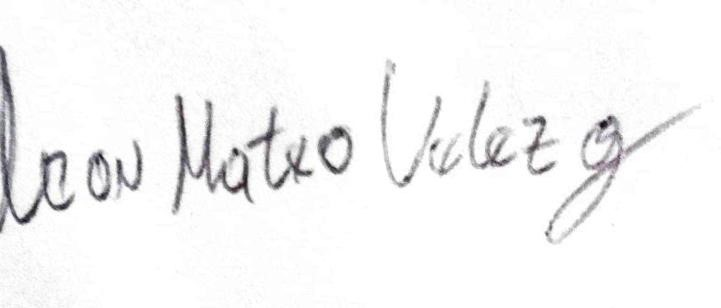 Leon Mateo Velez g